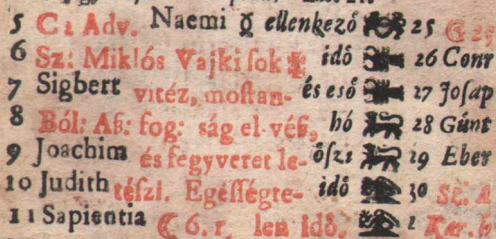 5 C 2 Adv. Naemi ellenkezö 25
6 Sz: Miklós Vajki ſok idö 26 Conr
7 Sigbert vitéz, moſtan- és eső 27 Joſap
8 Ból: Aſ: fog: ság el-véſ, hó 28 Günt
9 Joachim és fegyveret le- öſzi 29 Eber
10 Judith téſzi. Egéſſégte- idö 30
11 Sapientia 6. r. len idö. 1